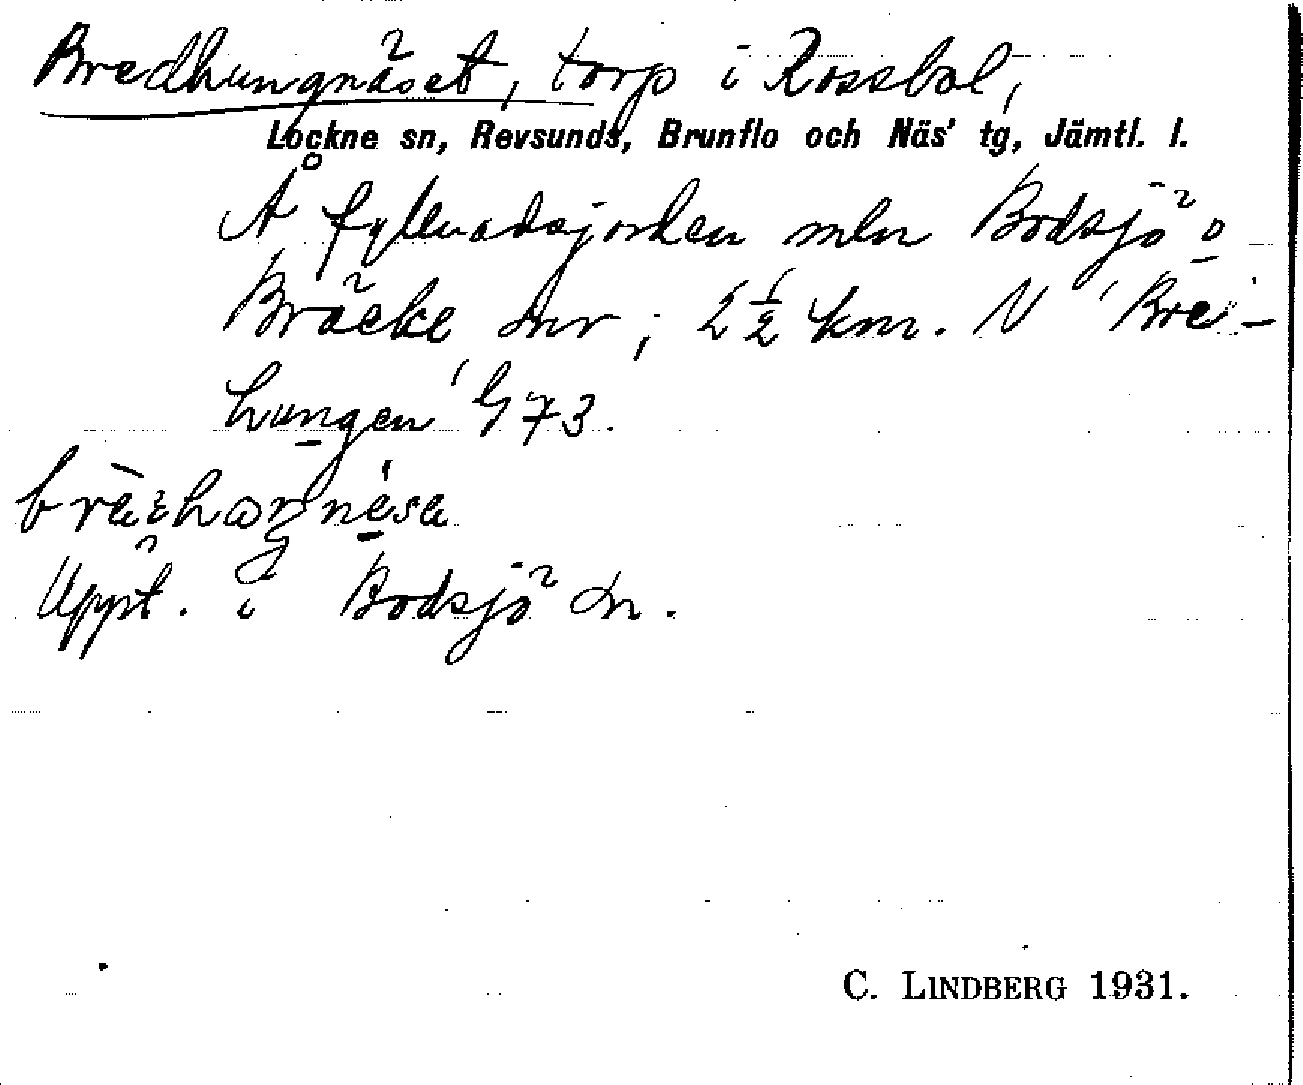 Bredhungnäset, torp i Rossbol,
Lockne sn, Revsunds, Brunflo och Näs' tg, Jämtl. l.
Å fyllnadsjorden mln Bodsjö o
Bräcke snr; 2½ km. N 'Bre-
hungen' G 73.
Uppt. i Bodsjö sn.
C. LINDBERG 1931.